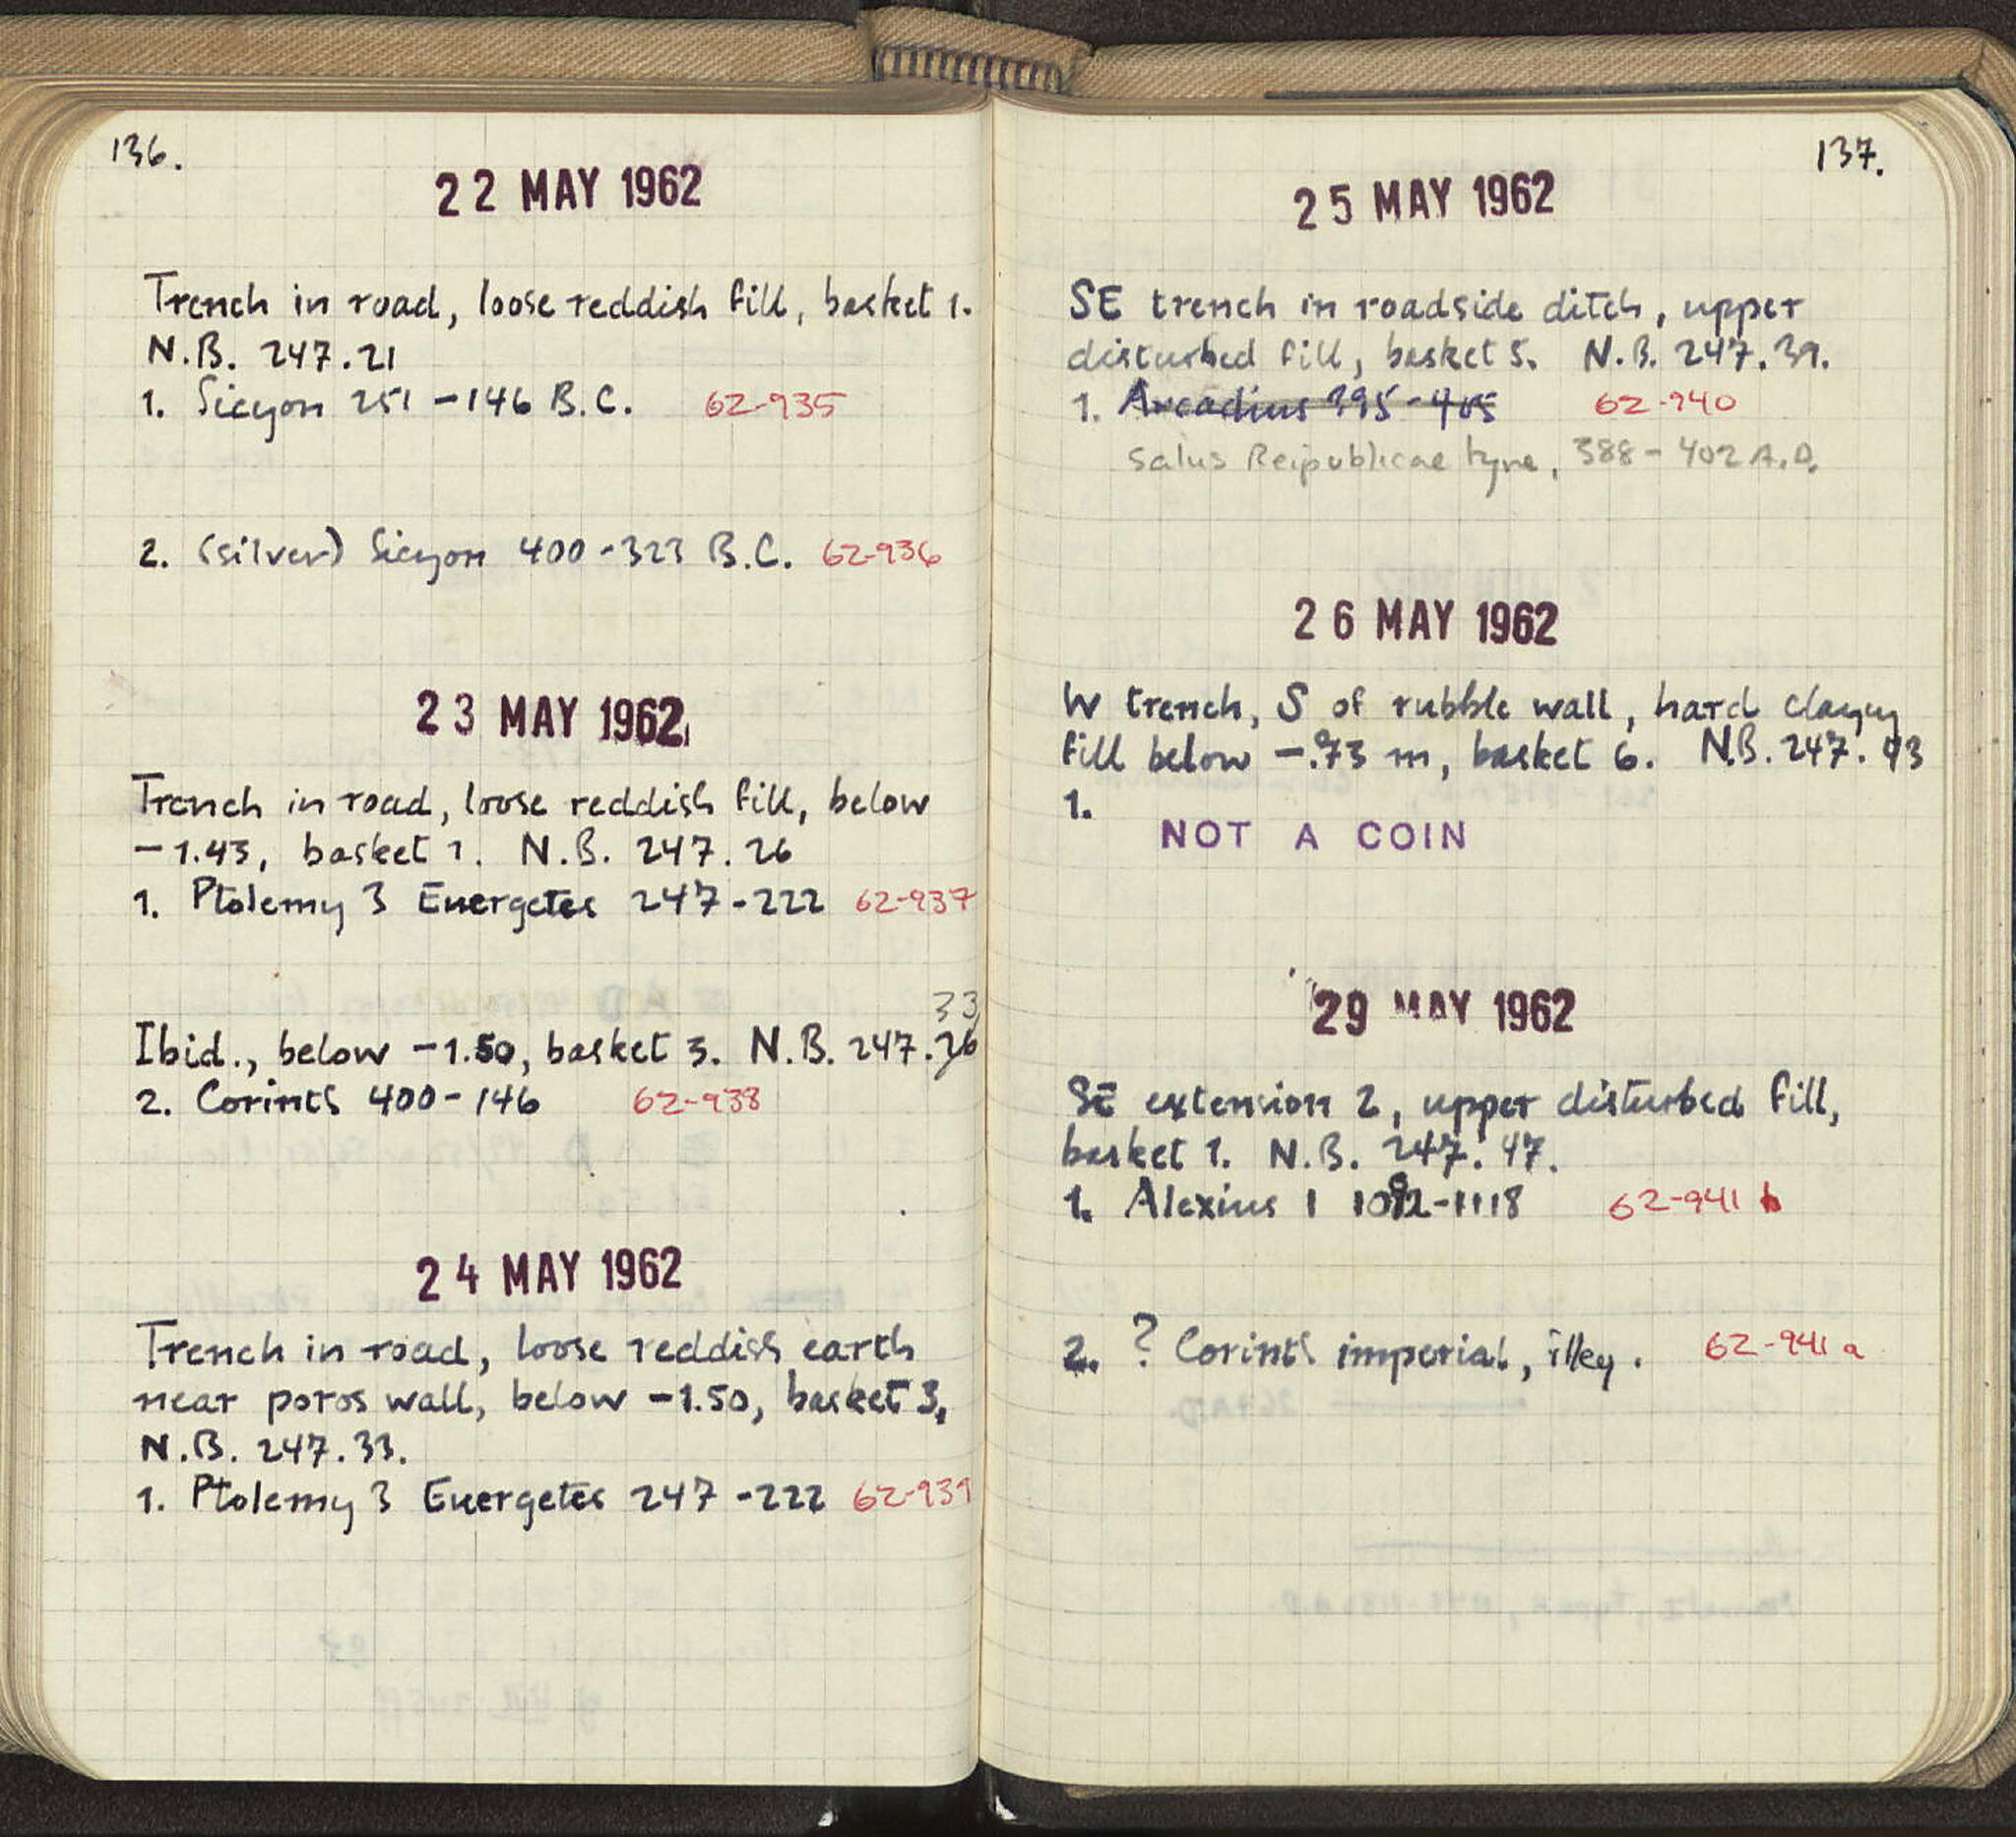 136.
22 MAY 1962
Trench in road, loose reddish fill, basket 1.
N.B. 247.21
1. Sicyon 251-146 B.C. 62-935
2. (silver) Sicyon 400-323 B.C. 62-936
23 MAY 1962
Trench in road, loose reddish fill, below
-1.43, basket 1. N.B. 247.26
1. Ptolemy 3 Euergetes 247-222 62-937
33
Ibid., below -1.50, basket 3. N.B. 247.26
2. Corinth 400-146 62-938
24 MAY 1962
Trench in road, loose reddish earth
near poros wall, below -1.50, basket 3,
N.B. 247.33.
1. Ptolemy 3 Euergetes 247-222 62-939
137.
25 MAY 1962
SE trench in roadside ditch, upper
disturbed fill, basket 5. N.B. 247.39.
1. Arcadius 395-405 62-940
Salus Reipublicae type, 388-402 A.D.
26 MAY 1962
W trench, S of rubble wall, hard clayey
fill below -.93 m, basket 6. N.B. 247.43
1.
NOT A COIN
29 MAY 1962
SE extension 2, upper disturbed fill,
basket 1. N.B. 247.47.
1. Alexius 1 1092-1118 62-941 b
2. ? Corinth imperial, illeg. 62-941 a